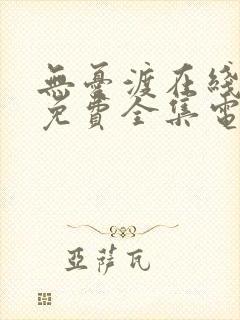 無憂渡在綫
免費全集電
亞薩瓦